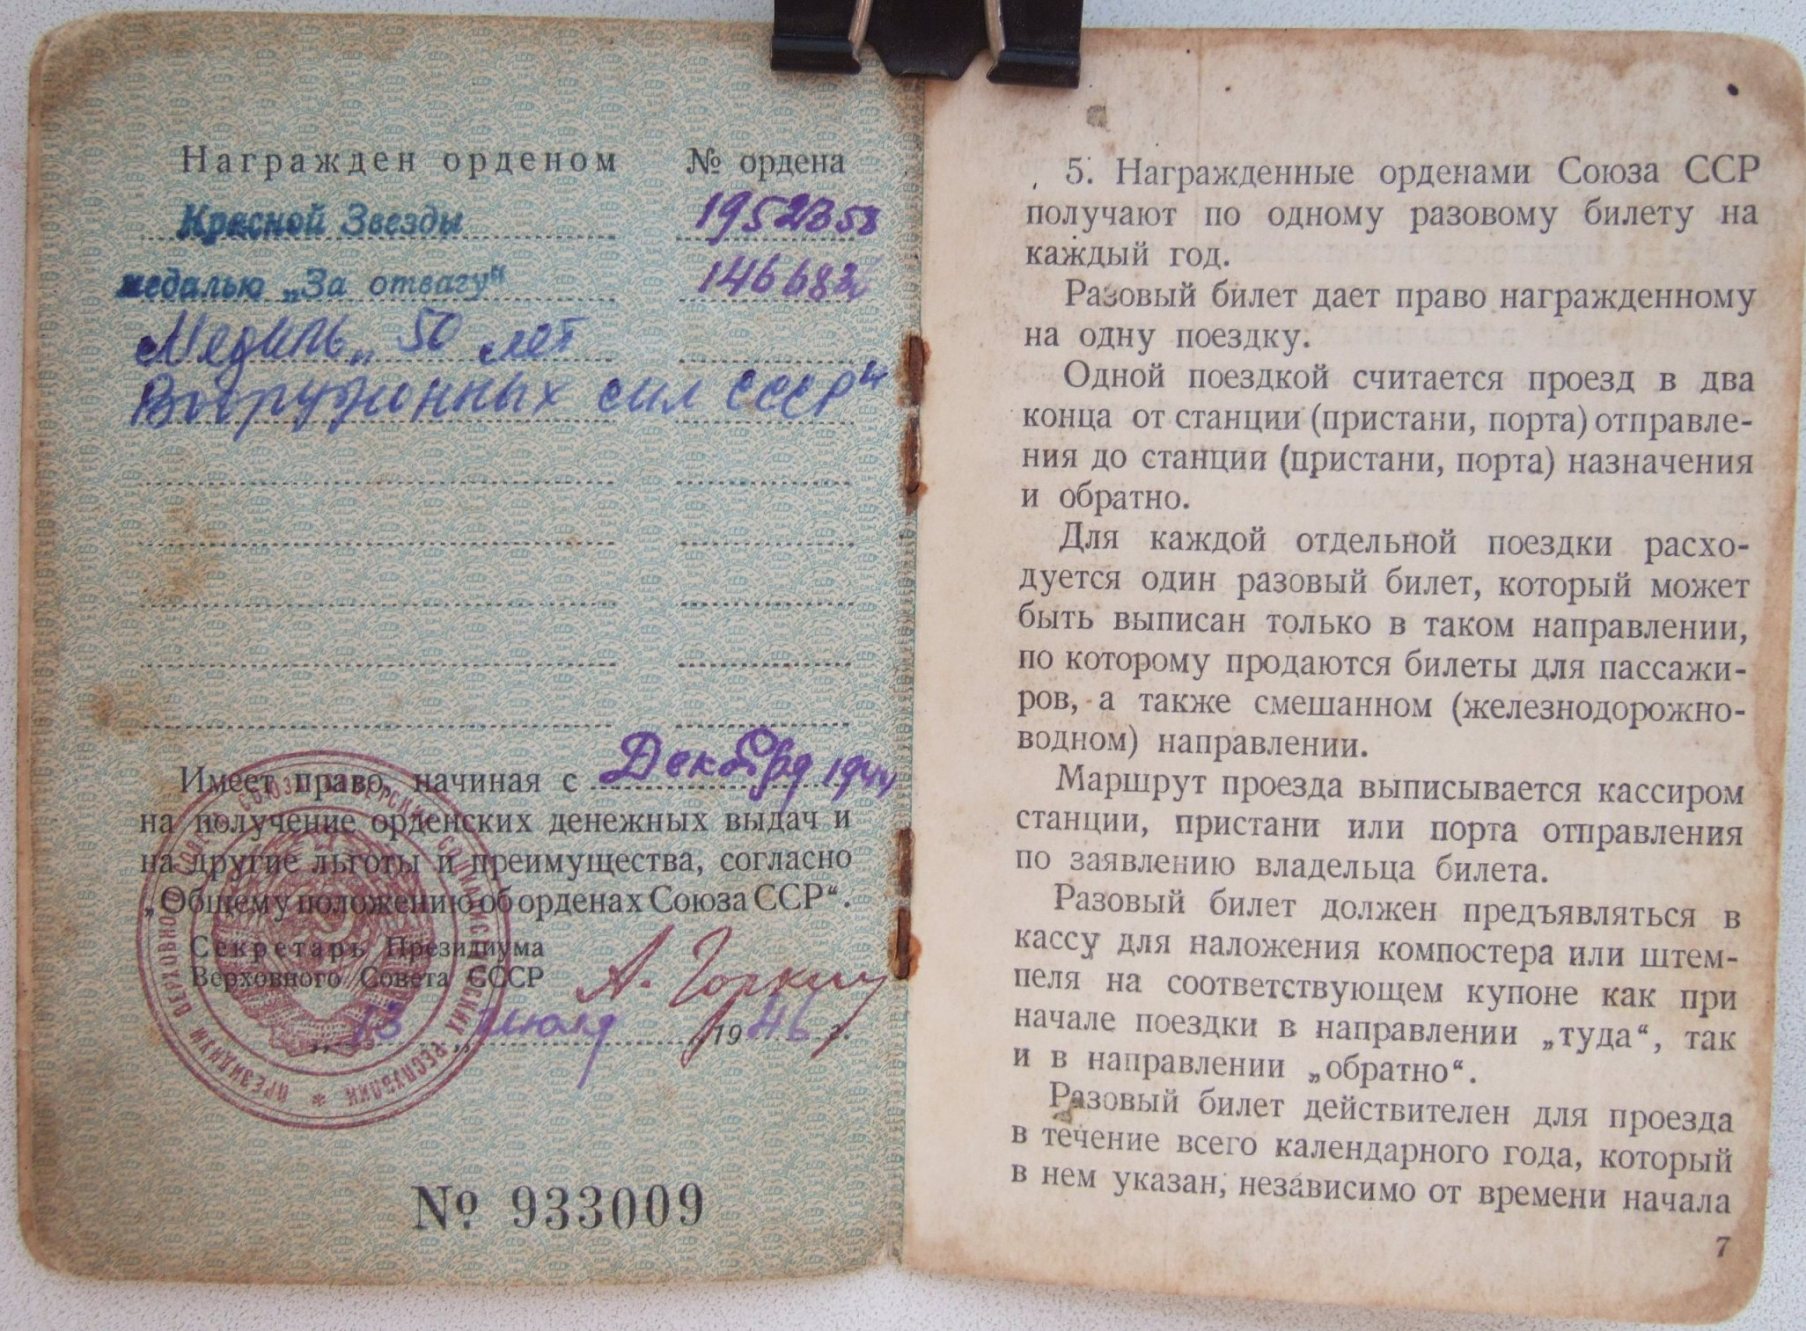 Награжден орденом № ордена
Красной Звезды 1952358
медалью „За отвагу“ 146682
Медаль „50 лет
Вооружонных сил СССР“
Имеет право, начиная с Декабря 1944
на получение орденских денежных выдач и
на другие льготы и преимущества, согласно
„Общему положению об орденах Союза ССР“.
Секретарь Президиума
Верховного Совета СССР А. Горкин
„13„ июля 1946 г.
ПРЕЗИДИУМ ВЕРХОВНОГО СОВЕТА СОЮЗА СОВЕТСКИХ СОЦИАЛИСТИЧЕСКИХ РЕСПУБЛИК *
№ 933009
5. Награжденные орденами Союза ССР
получают по одному разовому билету на
каждый год.
Разовый билет дает право награжденному
на одну поездку.
Одной поездкой считается проезд в два
конца от станции (пристани, порта) отправле-
ния до станции (пристани, порта) назначения
и обратно.
Для каждой отдельной поездки расхо-
дуется один разовый билет, который может
быть выписан только в таком направлении,
по которому продаются билеты для пассажи-
ров, а также смешанном (железнодорожно-
водном) направлении.
Маршрут проезда выписывается кассиром
станции, пристани или порта отправления
по заявлению владельца билета.
Разовый билет должен предъявляться в
кассу для наложения компостера или штем-
пеля на соответствующем купоне как при
начале поездки в направлении „туда“, так
и в направлении „обратно“.
Разовый билет действителен для проезда
в течение всего календарного года, который
в нем указан, независимо от времени начала
7